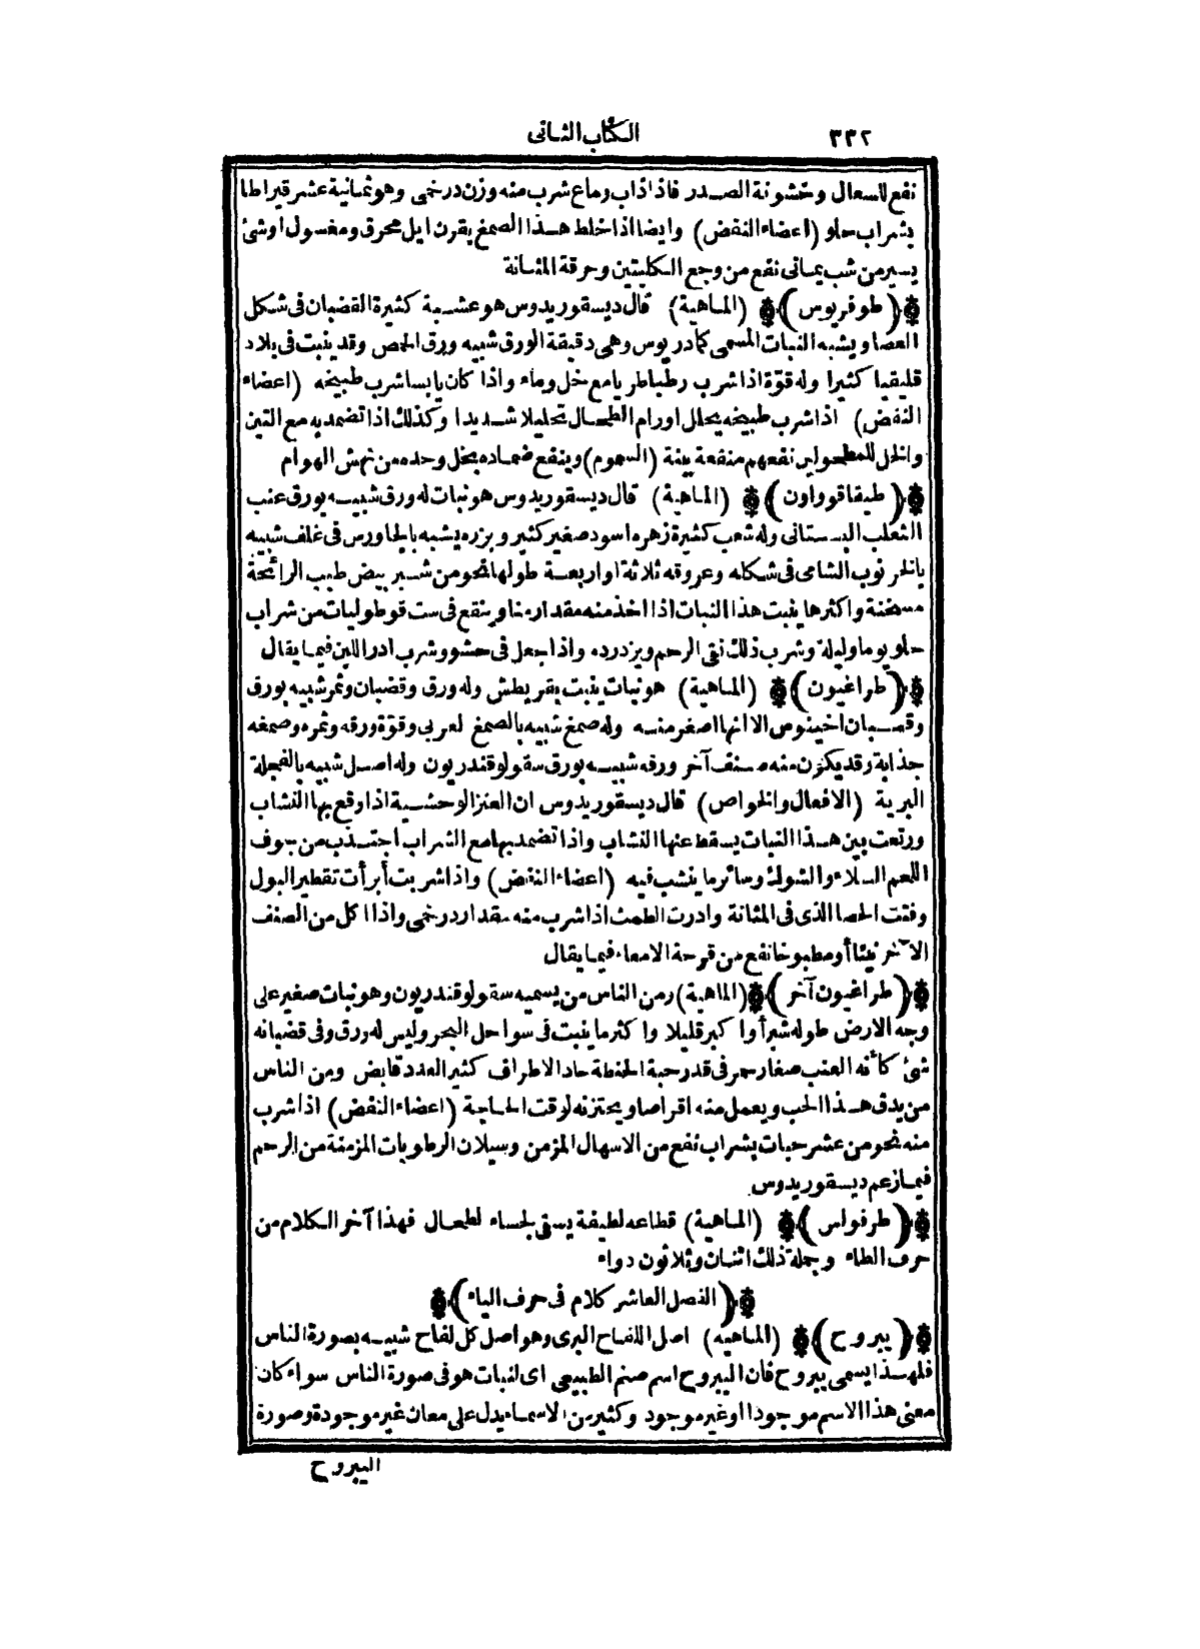 ٣٣٢ الكتاب الثانى
نفع السعال وخشونة الصدر فاذا ذاب وماع شرب منه وزن درخمى وهو ثمانية عشر قيراطا
بشراب حلو (اعضاء النفض) وايضا اذا خلط هذا الصمغ بقرن ايل محرق ومغسول اوشئ
يسير من شب يمانى نفع من وجع الكليتين وحرقة المثانة
(طوفريوس) (الماهية) قال ديسقوريدوس هو عشبة كثيرة القضبان فى شكل
العصا ويشبه النبات المسمى كمادريوس وهى دقيقة الورق شبيه ورق الحمص وقد ينبت فى بلاد
قليقيا كثيرا وله قوّة اذا شرب رطبا طريا مع خل وماء واذا كان يابسا شرب طبيخه (اعضاء
النفض) اذا شرب طبيخه يحلل اورام الطحال تحليلا شديدا وكذلك اذا تضمد به مع التين
والخل للمطحولين نفعهم منفعة بينة (السموم) وينفع ضماده بخل وحده من نهش الهوام
(طيفاقوواون) (الماهية) قال ديسقوريدوس هو نبات له ورق شبيه بورق عنب
الثعلب البستانى وله شعب كثيرة زهره اسود صغير كثير وبزره يشبه بالجاورس فى غلف شبيه
بالخرنوب الشامى فى شكله وعروقه ثلاثة او اربعة طولها نحو من شبر بيض طيب الرائحة
مسخنة واكثرها ينبت هذا النبات اذا اخذ منه مقدار منا وينقع فى ست قوطوليات من شراب
حلو يوما وليلة وشرب ذلك نقى الرحم ويزدرده واذا جعل فى حشو وشرب ادر اللبن فيما يقال
(طراغيون) (الماهية) هو نبات ينبت بقريطش وله ورق وقضبان وثمر شبيه بورق
وقضبان اخينوص الا انها اصغر منه وله صمغ شبيه بالصمغ لعربى وقوّة ورقه وثمره وصمغه
جذابة وقد يكون منه صنف آخر ورقه شبيه بورق سقولوقندريون وله اصل شبيه بالفجلة
البرية (الافعال والخواص) قال ديسقوريدوس ان العنز الوحشية اذا وقع بها النشاب
ورتعت بين هذا النبات يسقط عنها النشاب واذا تضمد بها مع الشراب اجتذب من جوف
اللحم السلاء والشوك وسائر ما ينشب فيه (اعضاء النفض) واذا شربت أبرأت تقطير البول
وفتت الحصا الذى فى المثانة وادرت الطمث اذا شرب منه مقدار درخمى واذا اكل من الصنف
الآخر نيئا أو مطبوخا نفع من قرحة الامعاء فيما يقال
(طراغيون آخر) (الماهية) ومن الناس من يسميه سقولوقندريون وهو نبات صغير على
وجه الارض طوله شبر أو اكبر قليلا واكثر ما ينبت فى سواحل البحر وليس له ورق وفى قضبانه
شئ كأنه العنب صغار حمر فى قدر حبة الحنطة حاد الاطراف كثير العدد قابض ومن الناس
من يدق هذا الحب ويعمل منه اقراصا ويختزنه لوقت الحاجة (اعضاء النفض) اذا شرب
منه نحو من عشر حبات بشراب نفع من الاسهال المزمن وسيلان الرطوبات المزمنة من الرحم
فيما زعم ديسقوريدوس
(طرفولس) (الماهية) قطاعه لطيفة يسقى لجساء لطحال فهذا آخر الكلام من
حرف الطاء وجملة ذلك اثنان وثلاثون دواء
(الفصل العاشر كلام فى حرف الياء)
(يبروح) (الماهيه) اصل اللفاح البرى وهو اصل كل لفاح شبيه بصورة الناس
فلهذا يسمى يبروح فان اليبروح اسم صنم الطبيعى اى لنبات هو فى صورة الناس سواء كان
معنى هذا الاسم موجودا او غير موجود وكثير من الاسماء يدل على معان غير موجودة وصورة
اليبروح